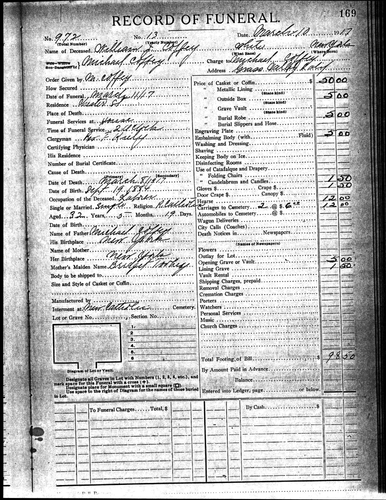 169
RECORD OF FUNERAL.
No. 972 No. 13 March 10 1917
(Total Number) (Yearly Number)
Name of Deceased William J. Coffey White
Michael Coffey Charge to Michael Coffey
Address Grass Valley
Order Given by M. Coffey
How Secured
Date of Funeral March 11/17
Residence
Place of Death
Funeral Services at
Time of Funeral Service 2 O'Clock
Clergyman
Certifying Physician
His Residence
Number of Burial Certificate
Cause of Death
Date of Death March 8/1917
Date of Birth Sept 19 1884
Occupation of the Deceased
Single or Married Single Religion R. Catholic
Aged 32 Years 5 Months 19 Days
Name of Father Michael Coffey
His Birthplace New York
Name of Mother
Her Birthplace New York
Mother's Maiden Name Bridget
Body to be shipped to
Size and Style of Casket or Coffin
Manufactured by
Interment at New Catholic Cemetery.
Lot or Grave No. Section No.
1
2
3
4
5
Diagram of Lot or Vault.
Designate all Graves in Lot with Numbers (1, 2, 3, 4, etc.), and mark space for this Funeral with a cross
Designate place for Monument with a small square
Use space to the right of Diagram for the names of those buried in Lot.
Price of Casket or Coffin 50.00
Metallic Lining
Outside Box 5.00
Grave Vault
Burial Robe 5.00
Burial Slippers and Hose
Engraving Plate
Embalming Body (with Fluid) 5.00
Washing and Dressing
Shaving
Keeping Body on Ice
Disinfecting Rooms
Use of Catafalque and Drapery
Folding Chairs 1.50
Candelabrum and Candles
Gloves $ Crape $ 1.50
Door Crape $ Canopy $
Hearse 12.00
Carriages to Cemetery 2 @ $ 6.00 12.00
Automobiles to Cemetery @ $
Wagon Deliveries
City Calls (Coaches)
Death Notices in Newspapers
(Names of Newspapers)
Flowers
Outlay for Lot
Opening Grave or Vault 5.00
Lining Grave 1.00
Vault Rental
Shipping Charges, prepaid
Removal Charges
Cremation Charges
Porters
Watchers
Personal Services
Music
Church Charges
Total Footing of Bill $ 98.50
By Amount Paid in Advance
Balance
Entered into Ledger, page or below.
To Funeral Charges Total, $ By Cash $